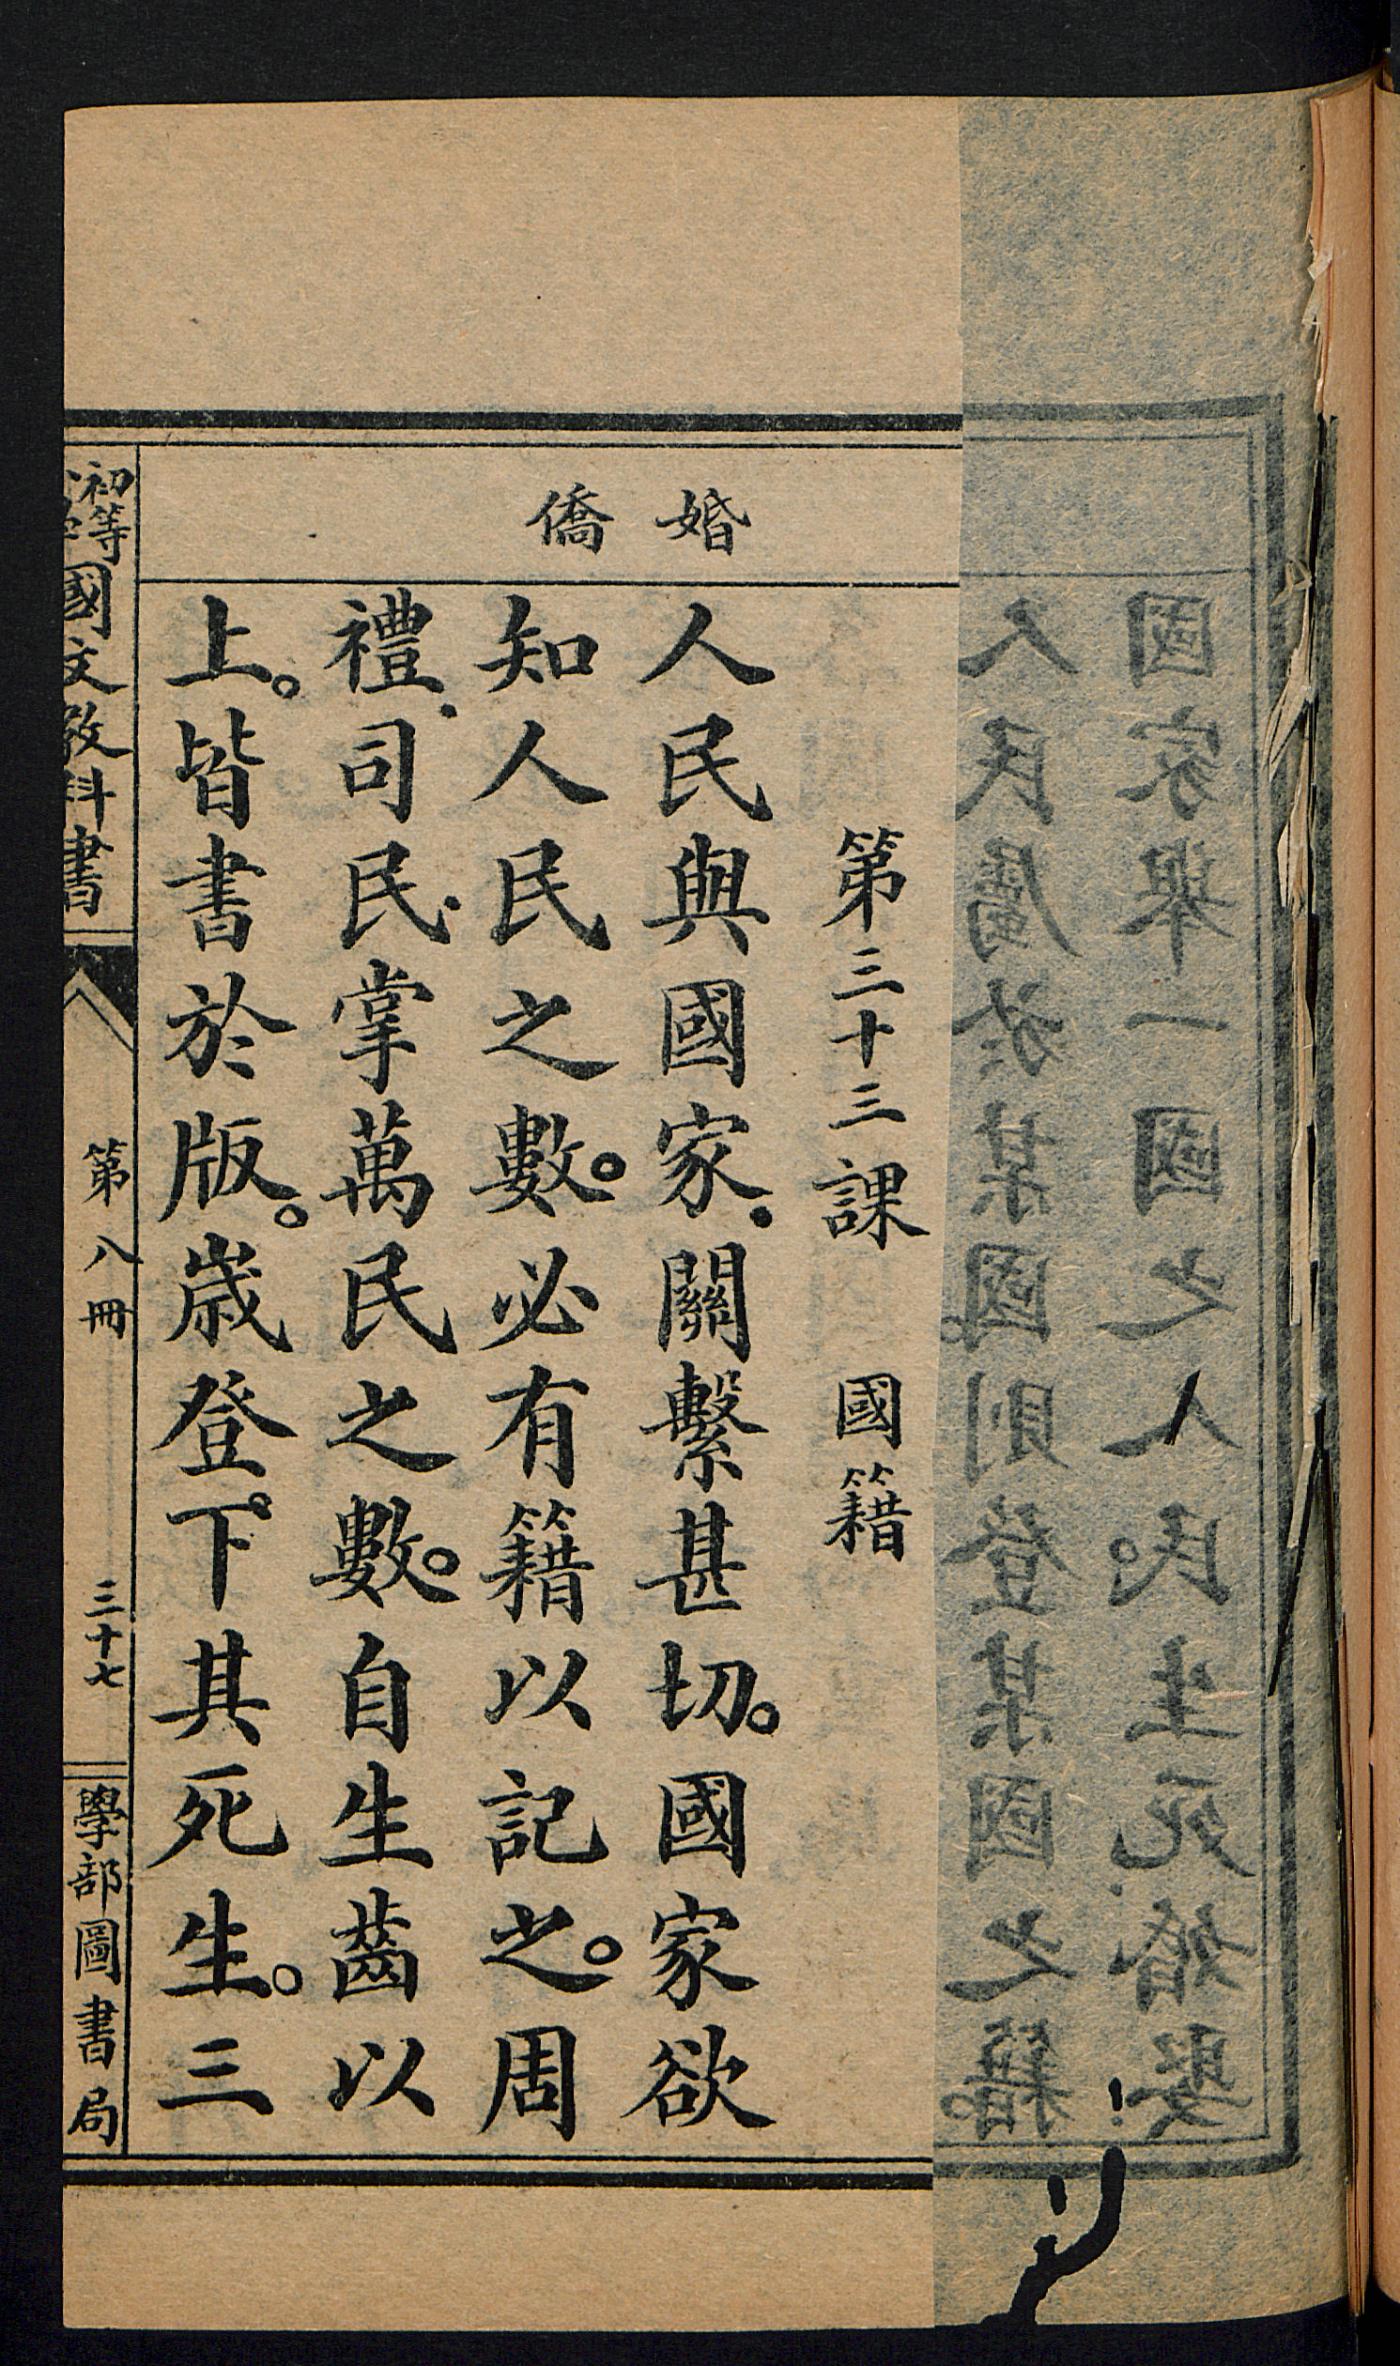 婚
僑
第三十三課 國籍
人民與國家.關繫甚切。國家欲
知人民之數。必有籍以記之。周
禮.司民.掌萬民之數。自生齒以
上。皆書於版。歲登。下其死生。三
初等
國文教科書
第八冊
三十七
學部圖書局
國家舉一國之人民。生死.婚娶
人民屬於某國。則登某國之籍。